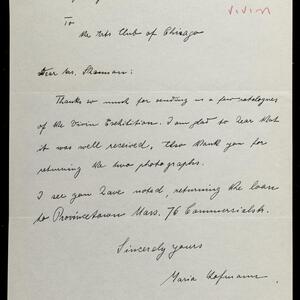 VIVIN
To
the Arts Club of Chicago
Dear Mrs. Shannon:
Thanks so much for sending us a few catalogues
of the Vivin Exhibition. I am glad to hear that
it was well received. Also thank you for
returning the two photographs.
I see you have noted, returning the loan
to Provincetown Mass. 76 Commercialstr.
Sincerely yours
Maria Hofmann